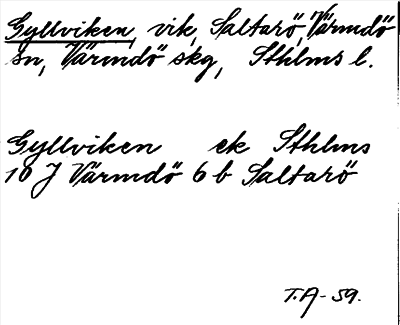 Gyllviken, vik, Saltarö, Värmdö
sn, Värmdö skg, Sthlms l.
Gyllviken ek Sthlms
10 J Värmdö 6 b Saltarö
T.A - 59.